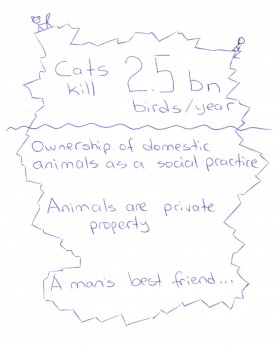 Cats
kill
2.5 bn
birds/year
Ownership of domestic
animals as a social practice
Animals are private
property
A man's best friend...